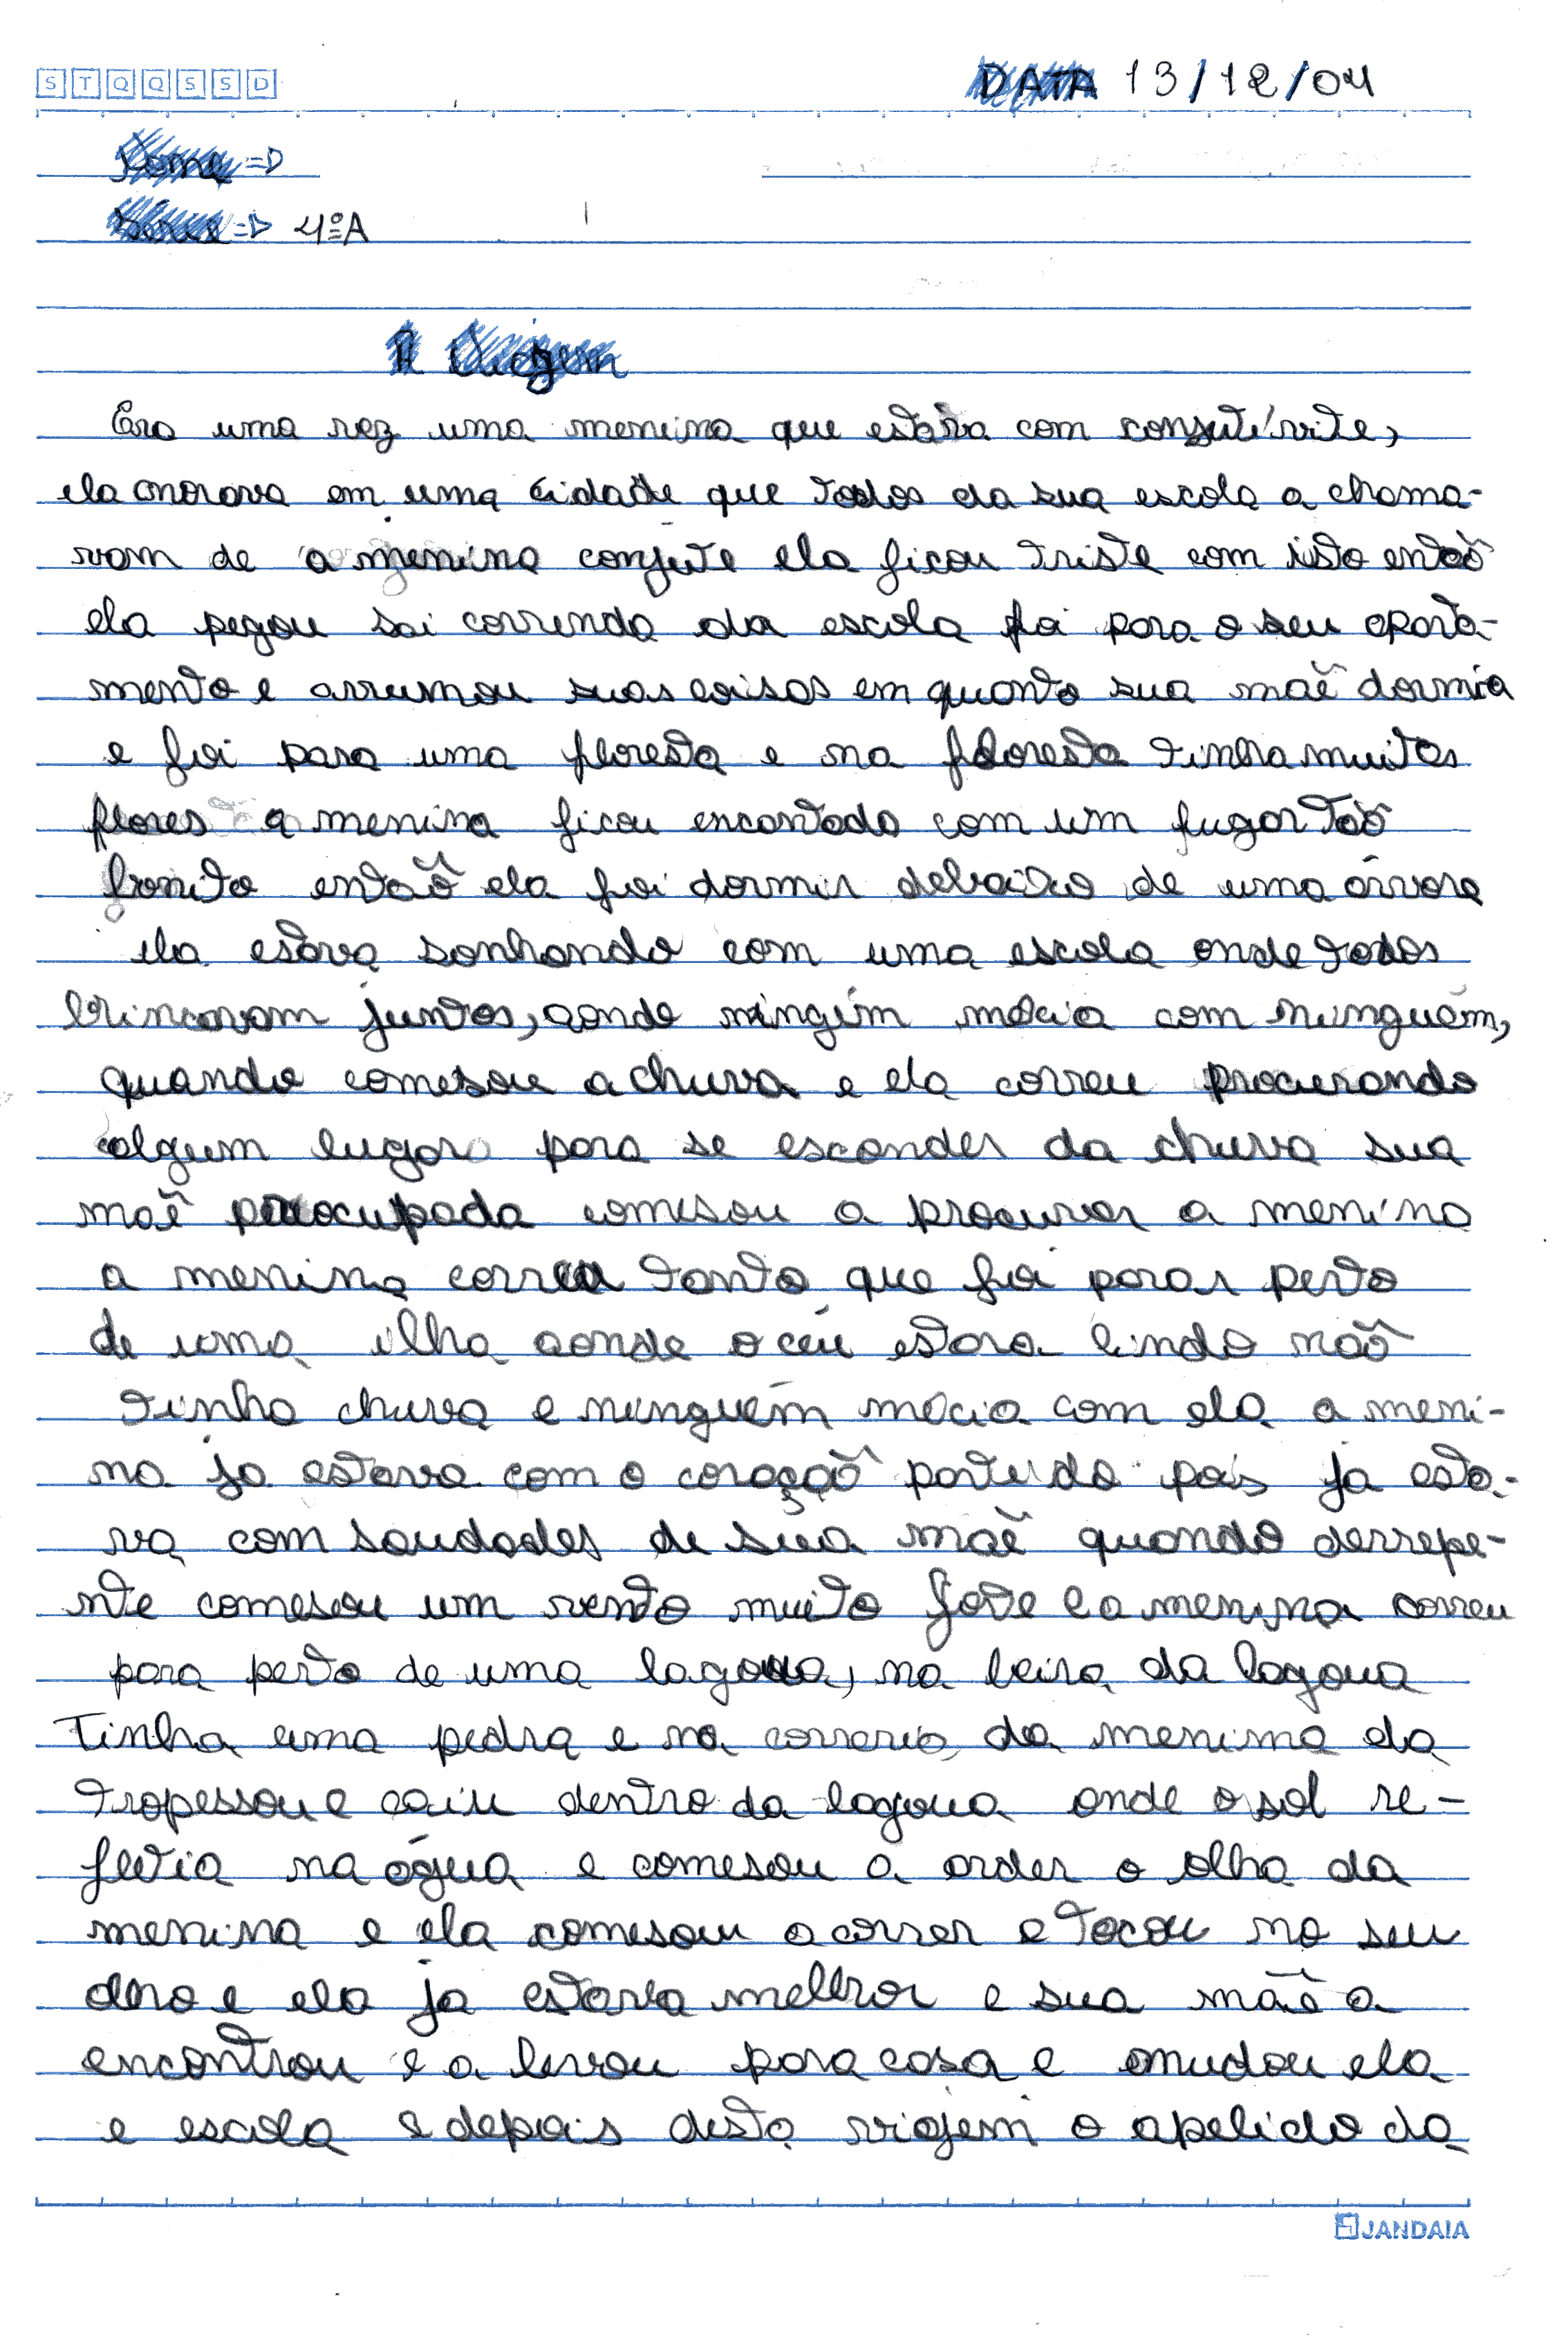 S T Q Q S S D
DATA 13/12/04
Nome =>
Série => 4ºA
A Viagem
Era uma vez uma menina que estava com conjutívite,
ela morava em uma cidade que todos da sua escola a chama-
vam de a menina conjute ela ficou triste com isto então
ela pegou sai correndo da escola foi para o seu aparta-
mento e arrumou suas coisas em quanto sua mãe dormia
e foi para uma floresta e na floresta tinha muitas
flores a menina ficou encantada com um lugar tão
bonito então ela foi dormir debaixo de uma árvore
ela estava sonhando com uma escola onde todos
brincavam juntos, aonde ningém mecia com ninguém,
quando comesou a chuva e ela correu procurando
algum lugar para se esconder da chuva sua
mãe preocupada comesou a procurar a menina
a menina correu tanto que foi parar perto
de uma ilha aonde o céu estava lindo não
tinha chuva e ninguém mecia com ela a meni-
na ja estava com o coração partido pois ja esta-
va com saudades de sua mãe quando derrepe-
nte comesou um vento muito fote e a menina correu
para perto de uma lagoua, na beira da lagoua
tinha uma pedra e na correria da menina ela
tropessou e caiu dentro da lagoua onde o sol re-
fletia na água e comesou a arder o olho da
menina e ela comesou a correr e tocou no seu
olho e ela ja estava melhor e sua mãe a
encontrou e a levou para casa e mudou ela
e escola e depois desta viajem o apelido da
JANDAIA